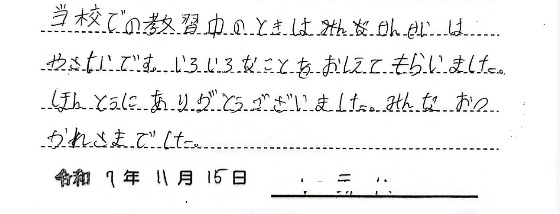 当校での教習中のときはみんなかんせいは
やさしいです。いろいろなことをおしえてもらいました。
ほんとうにありがとうございました。みんなおつ
かれさまでした。
令和 7年 11月 15日